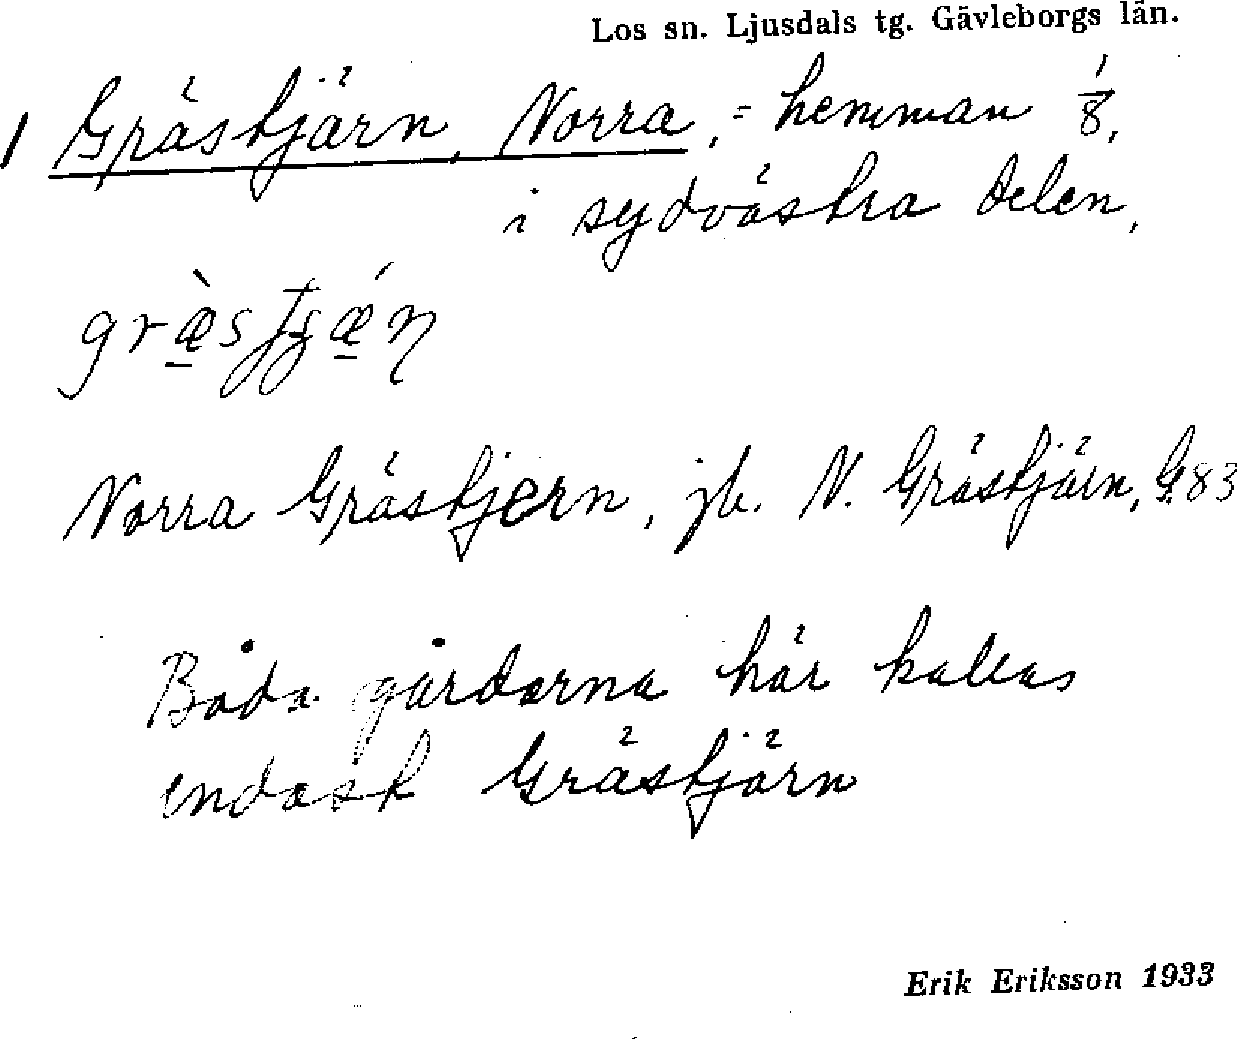 Los sn. Ljusdals tg. Gävleborgs län.
1 Grästjärn, Norra, = hemman 1/8,
i sydvästra delen,
Norra Grästjern, jb. N. Grästjärn, G83
Båda gårdarna här kallas
endast Grästjärn
Erik Eriksson 1933